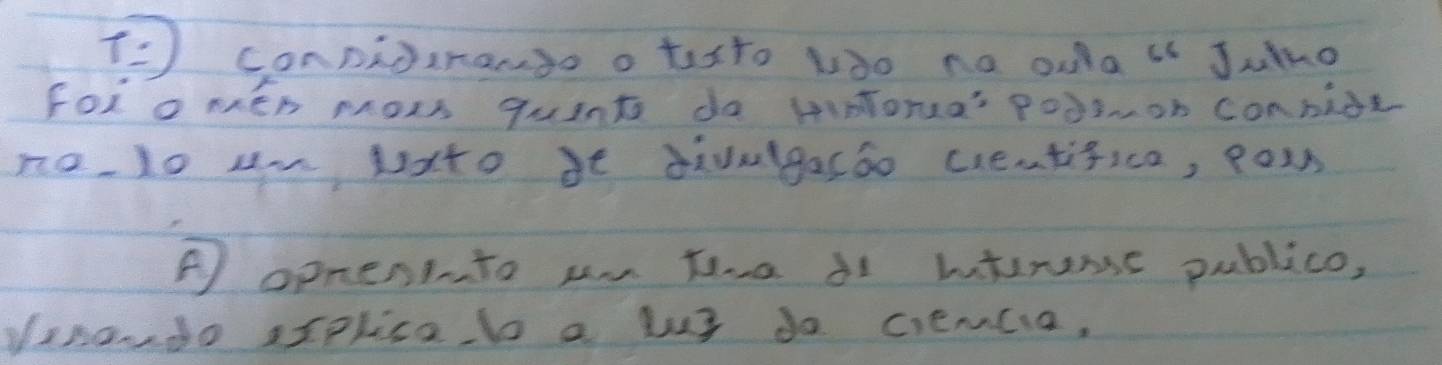 1=) considerando o texto lido na aula “ Julho
Foi o mês mais quente da Historia" Podemos conside
ra-lo um texto de divulgação cientifica, Pois
A) apresenta um tema de interesse publico,
Visando explica-lo a luz da ciencia.